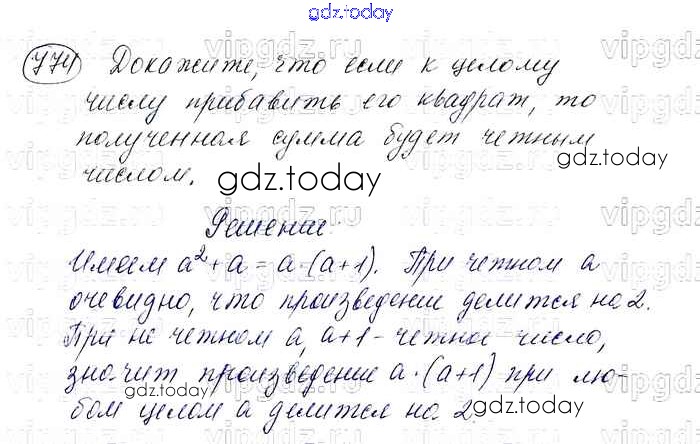 gdz.today
774 Докажите, что если к целому
числу прибавить его квадрат, то
полученная сумма будет четным
числом.
gdz.today
gdz.today
Решение:
Имеем a² + a = a · (a+1). При четном a
очевидно, что произведение делится на 2.
При не четном a, a+1 - четное число,
значит произведение a · (a+1) при лю-
бом целом a делится на 2.
gdz.today
gdz.today